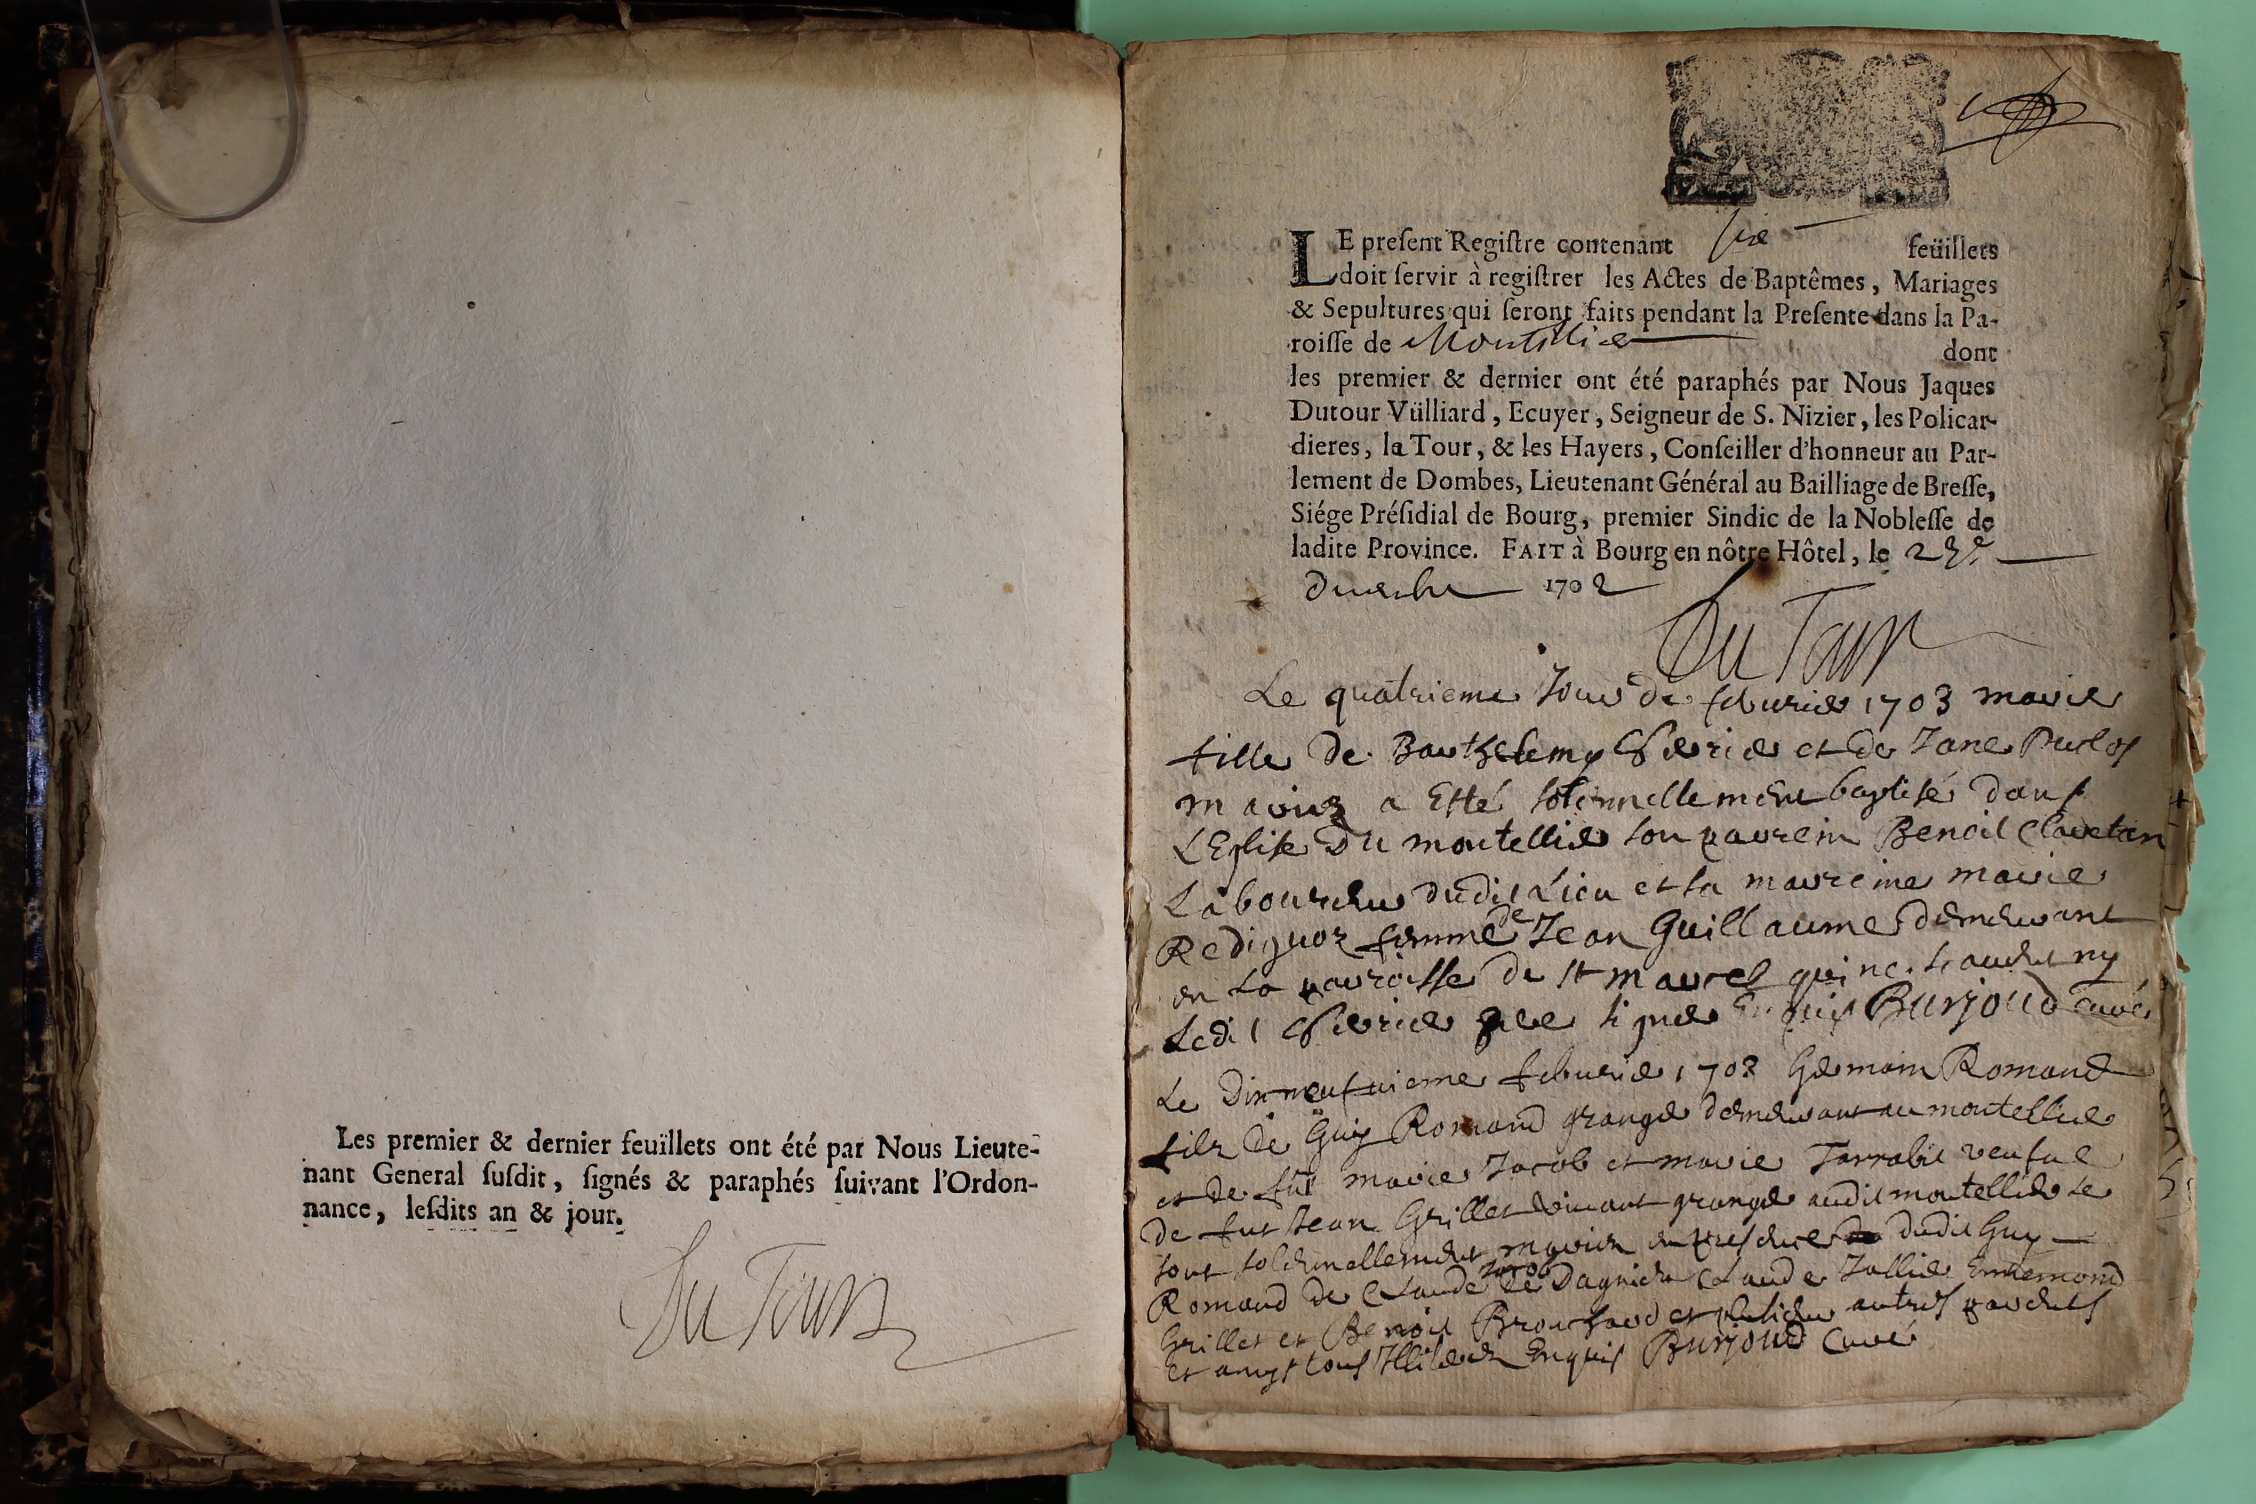 Les premier & dernier feüillets ont été par Nous Lieute-
nant General susdit, signés & paraphés suivant l'Ordon-
nance, lesdits an & jour.
Du Tour
LE present Registre contenant six feüillets
doit servir à registrer les Actes de Baptêmes, Mariages
& Sepultures qui seront faits pendant la Presente dans la Pa-
roisse de Montellier dont
les premier & dernier ont été paraphés par Nous Jaques
Dutour Vülliard, Ecuyer, Seigneur de S. Nizier, les Policar-
dieres, la Tour, & les Hayers, Conseiller d'honneur au Par-
lement de Dombes, Lieutenant Général au Bailliage de Bresse,
Siége Présidial de Bourg, premier Sindic de la Noblesse de
ladite Province. FAIT à Bourg en nôtre Hôtel, le
1702
Du Tour
Le quatrieme Jour de feburier 1703 marie
fille de Barthelemy et de Jane Duclos
mariez a Esté solennellement baptisé dans
L'Eglise du montellier son parrein Benoit Claretan
Laboureur dudit Lieu et sa marreine marie
Rediguoz femme de Jean Guillaume demeurant
en la parroisse de st marcel qui ne scauent ny
Ledit signer Enquis Burjoud curé
Le Dixneufuieme feburier 1703 Germain Romand
filz de Guy Romand granger demeurant au montellier
et de fut marie Jacob et marie Tarrabit veufue
de fut Jean Grillet viuant granger audit montellier se
sont solemnellement mariez en presence dudit Guy
Romand de Claude Jacob de Dagnieu Claude Jallier Ennemond
Grillet et Benoit Brouchard et plusieurs autres parents
et amys tous Illiterez Enquis Burjoud Curé